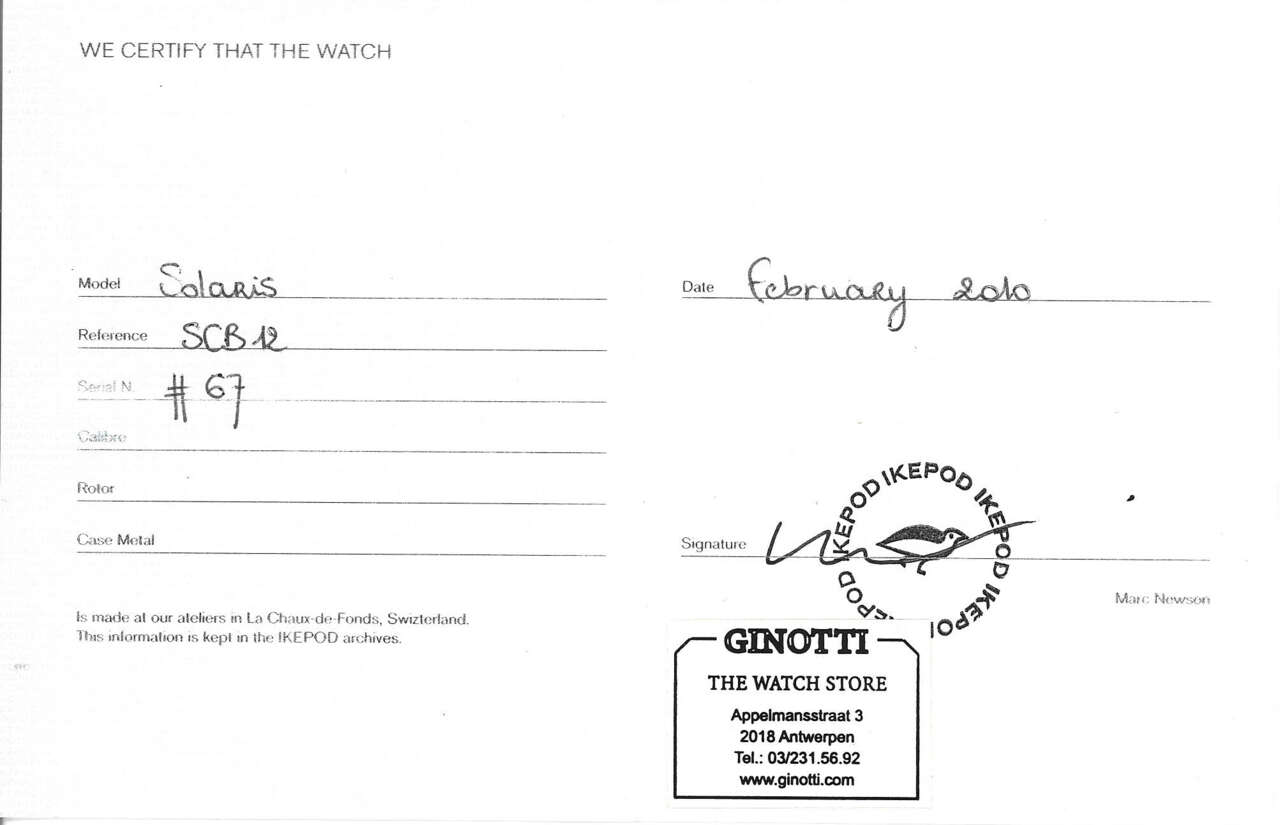 WE CERTIFY THAT THE WATCH
Model Solaris
Reference SCB12
Serial N. # 67
Calibre
Rotor
Case Metal
Is made at our ateliers in La Chaux-de-Fonds, Swizterland.
This information is kept in the IKEPOD archives.
Date February 2010
IKEPOD IKEPOD IKEPOD IKEPOD IKEPOD
Signature
Marc Newson
GINOTTI
THE WATCH STORE
Appelmansstraat 3
2018 Antwerpen
Tel.: 03/231.56.92
www.ginotti.com